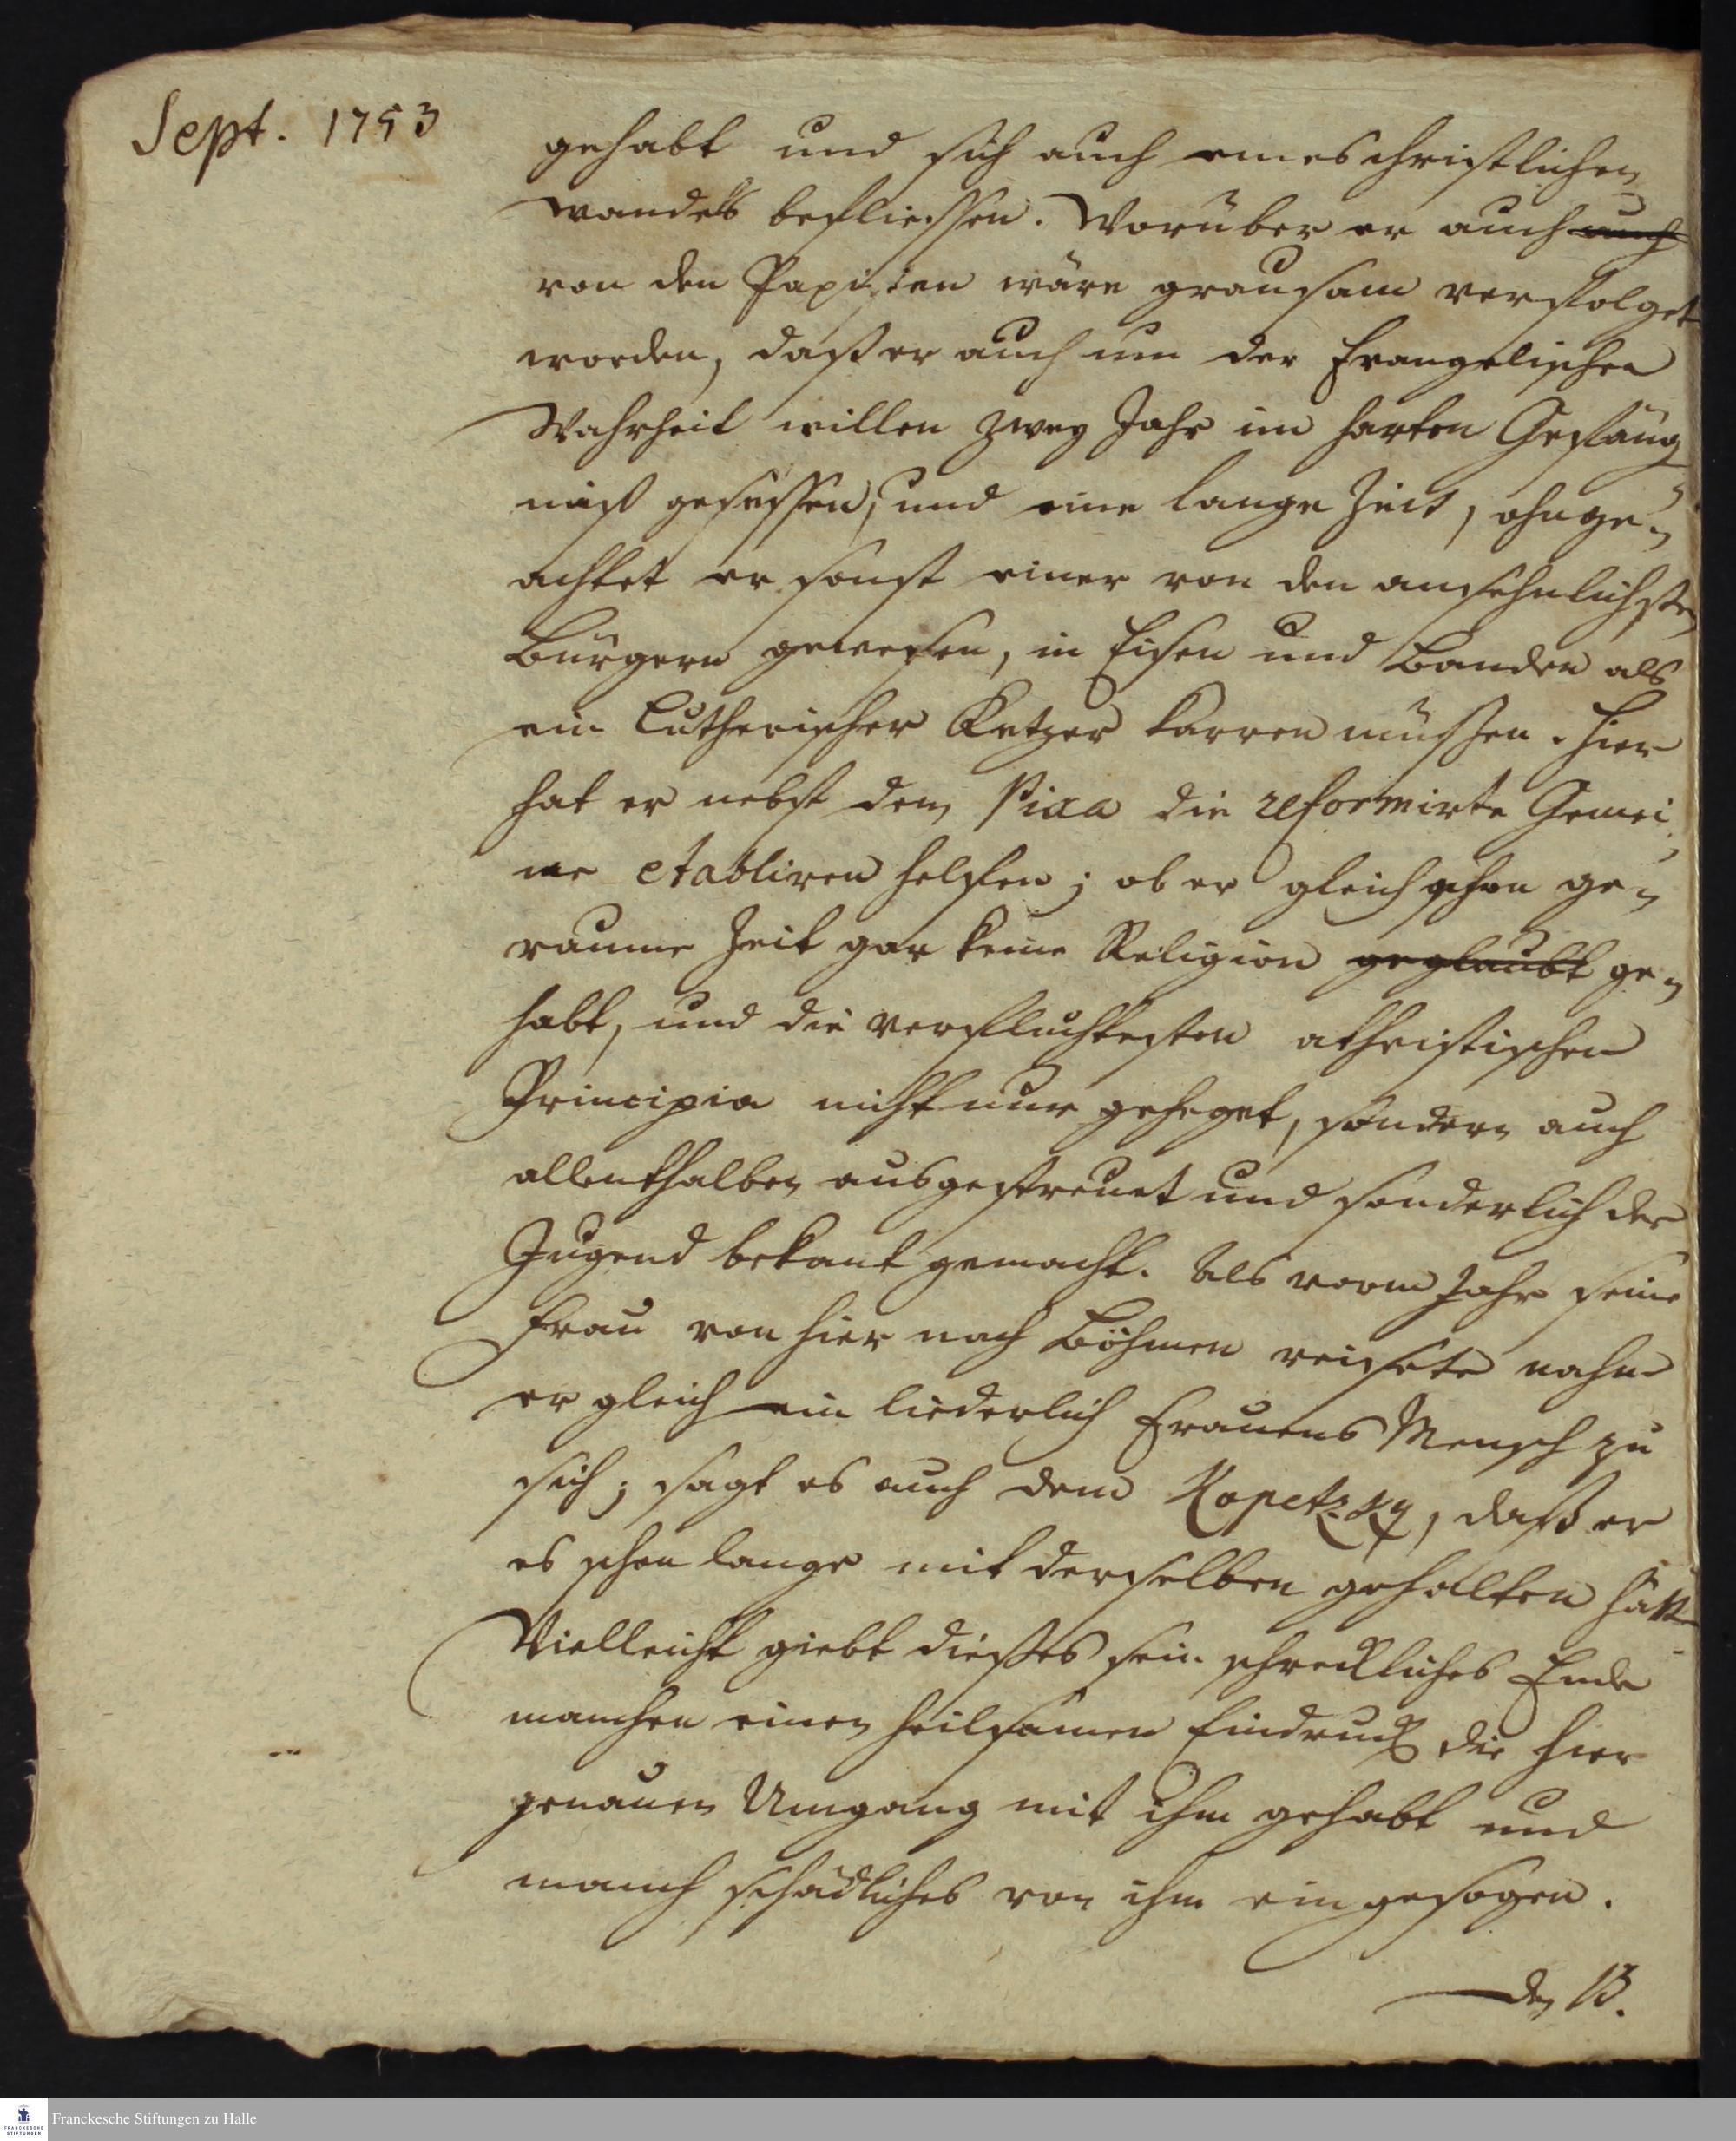 Sept. 1753
gehabt und sich auch eines christlichen
wandels befliessen. Worüber er auch auch
von den Papisten wäre grausam verfolget
worden, daß er auch um der Evangelischen
Wahrheit willen zwey Jahr im harten Gefäng
niß gesessen, und eine lange Zeit, ohnge-
achtet er sonst einer von den ansehnlichsten
Bürgern gewesen, in Eisen und Banden als
ein Lutherischer Ketzer karren müssen. Hier
hat er nebst dem Pixa die reformirte Gemei-
ne etabliren helfen; ob er gleich schon ge-
raume Zeit gar keine Religion geglaubt ge-
habt, und die verfluchtesten atheistischen
Principia nicht nur geheget, sondern auch
allenthalben ausgestreuet und sonderlich der
Jugend bekant gemacht. Als vorm Jahr seine
Frau von hier nach Böhmen reisete nahm
er gleich ein liederlich Frauens Mensch zu
sich; sagt es auch dem Kopetzky, daß er
es schon lange mit derselben gehalten hätte
Vielleicht giebt dieses sein schreckliches Ende
manchen einen heilsamen Eindruck die hier
genauen Umgang mit ihm gehabt und
manch schädliches von ihm eingesogen.
den 13.
Franckesche Stiftungen zu Halle
FRANCKESCHE
STIFTUNGEN